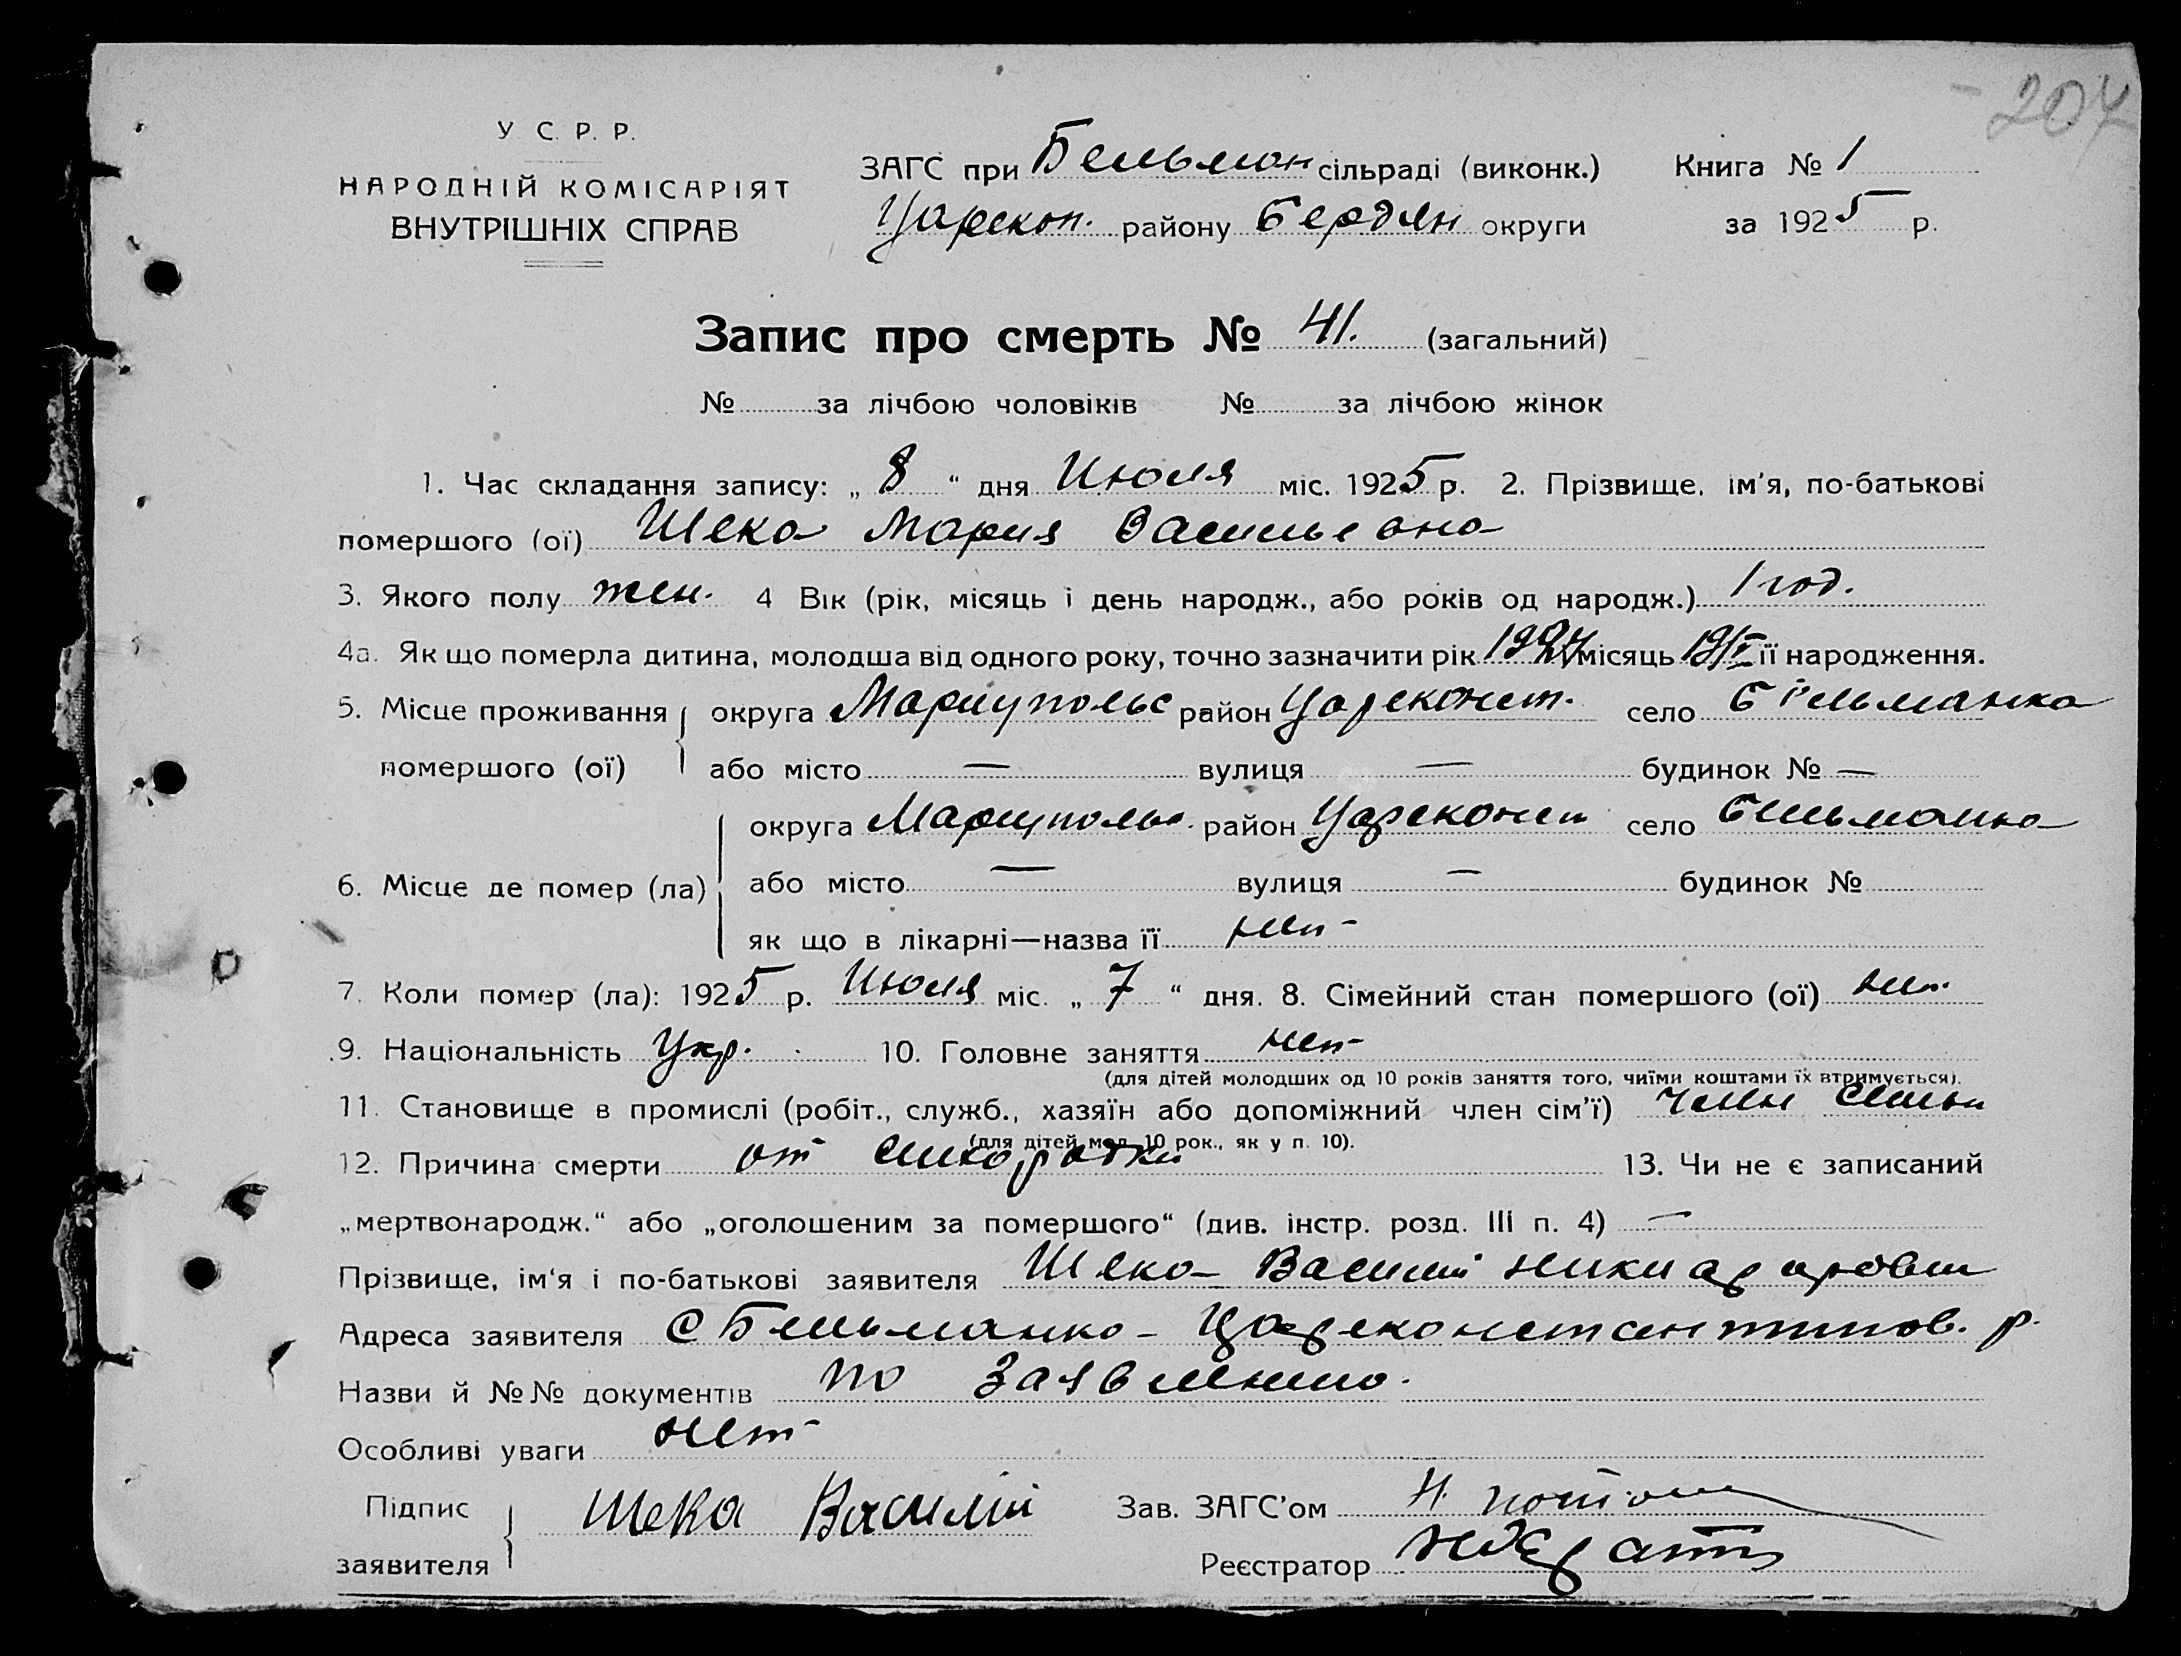 207
У. С. Р. Р.
НАРОДНІЙ КОМІСАРІЯТ
ВНУТРІШНІХ СПРАВ
ЗАГС при Бельман сільраді (виконк.) Книга № 1
Царекон. району Бердян округи за 1925 р.
Запис про смерть № 41. (загальний)
№ за лічбою чоловіків № за лічбою жінок
1. Час складання запису: „ 8 “ дня Июля міс. 1925 р. 2. Прізвище, ім'я, по-батькові
помершого (ої) Шека Мария Васильевна
3. Якого полу жен. 4 Вік (рік, місяць і день народж., або років од народж.) 1 год.
4а. Як що померла дитина, молодша від одного року, точно зазначити рік 1924 місяць її народження.
5. Місце проживання округа Мариупольс район Цареконст. село Бельманка
помершого (ої) або місто — вулиця — будинок № —
округа Мариупольс. район Цареконст село Бельманка
6. Місце де помер (ла) або місто — вулиця — будинок №
як що в лікарні—назва її нет
7. Коли помер (ла): 1925 р. Июля міс. „ 7 “ дня. 8. Сімейний стан помершого (ої) нет
9. Національність Укр. 10. Головне заняття нет
(для дітей молодших од 10 років заняття того, чиїми коштами їх втримується).
11. Становище в промислі (робіт., служб., хазяїн або допоміжний член сім'ї) член семьи
(для дітей мол. 10 рок., як у п. 10).
12. Причина смерти от лихорадки 13. Чи не є записаний
„мертвонародж.“ або „оголошеним за помершого“ (див. інстр. розд. III п. 4) —
Прізвище, ім'я і по-батькові заявителя Шека Василий
Адреса заявителя с Бельманка Цареконстантинов. р.
Назви й №№ документів по заявлению.
Особливі уваги нет
Підпис
заявителя Шека Василій
Зав. ЗАГС'ом
Реєстратор